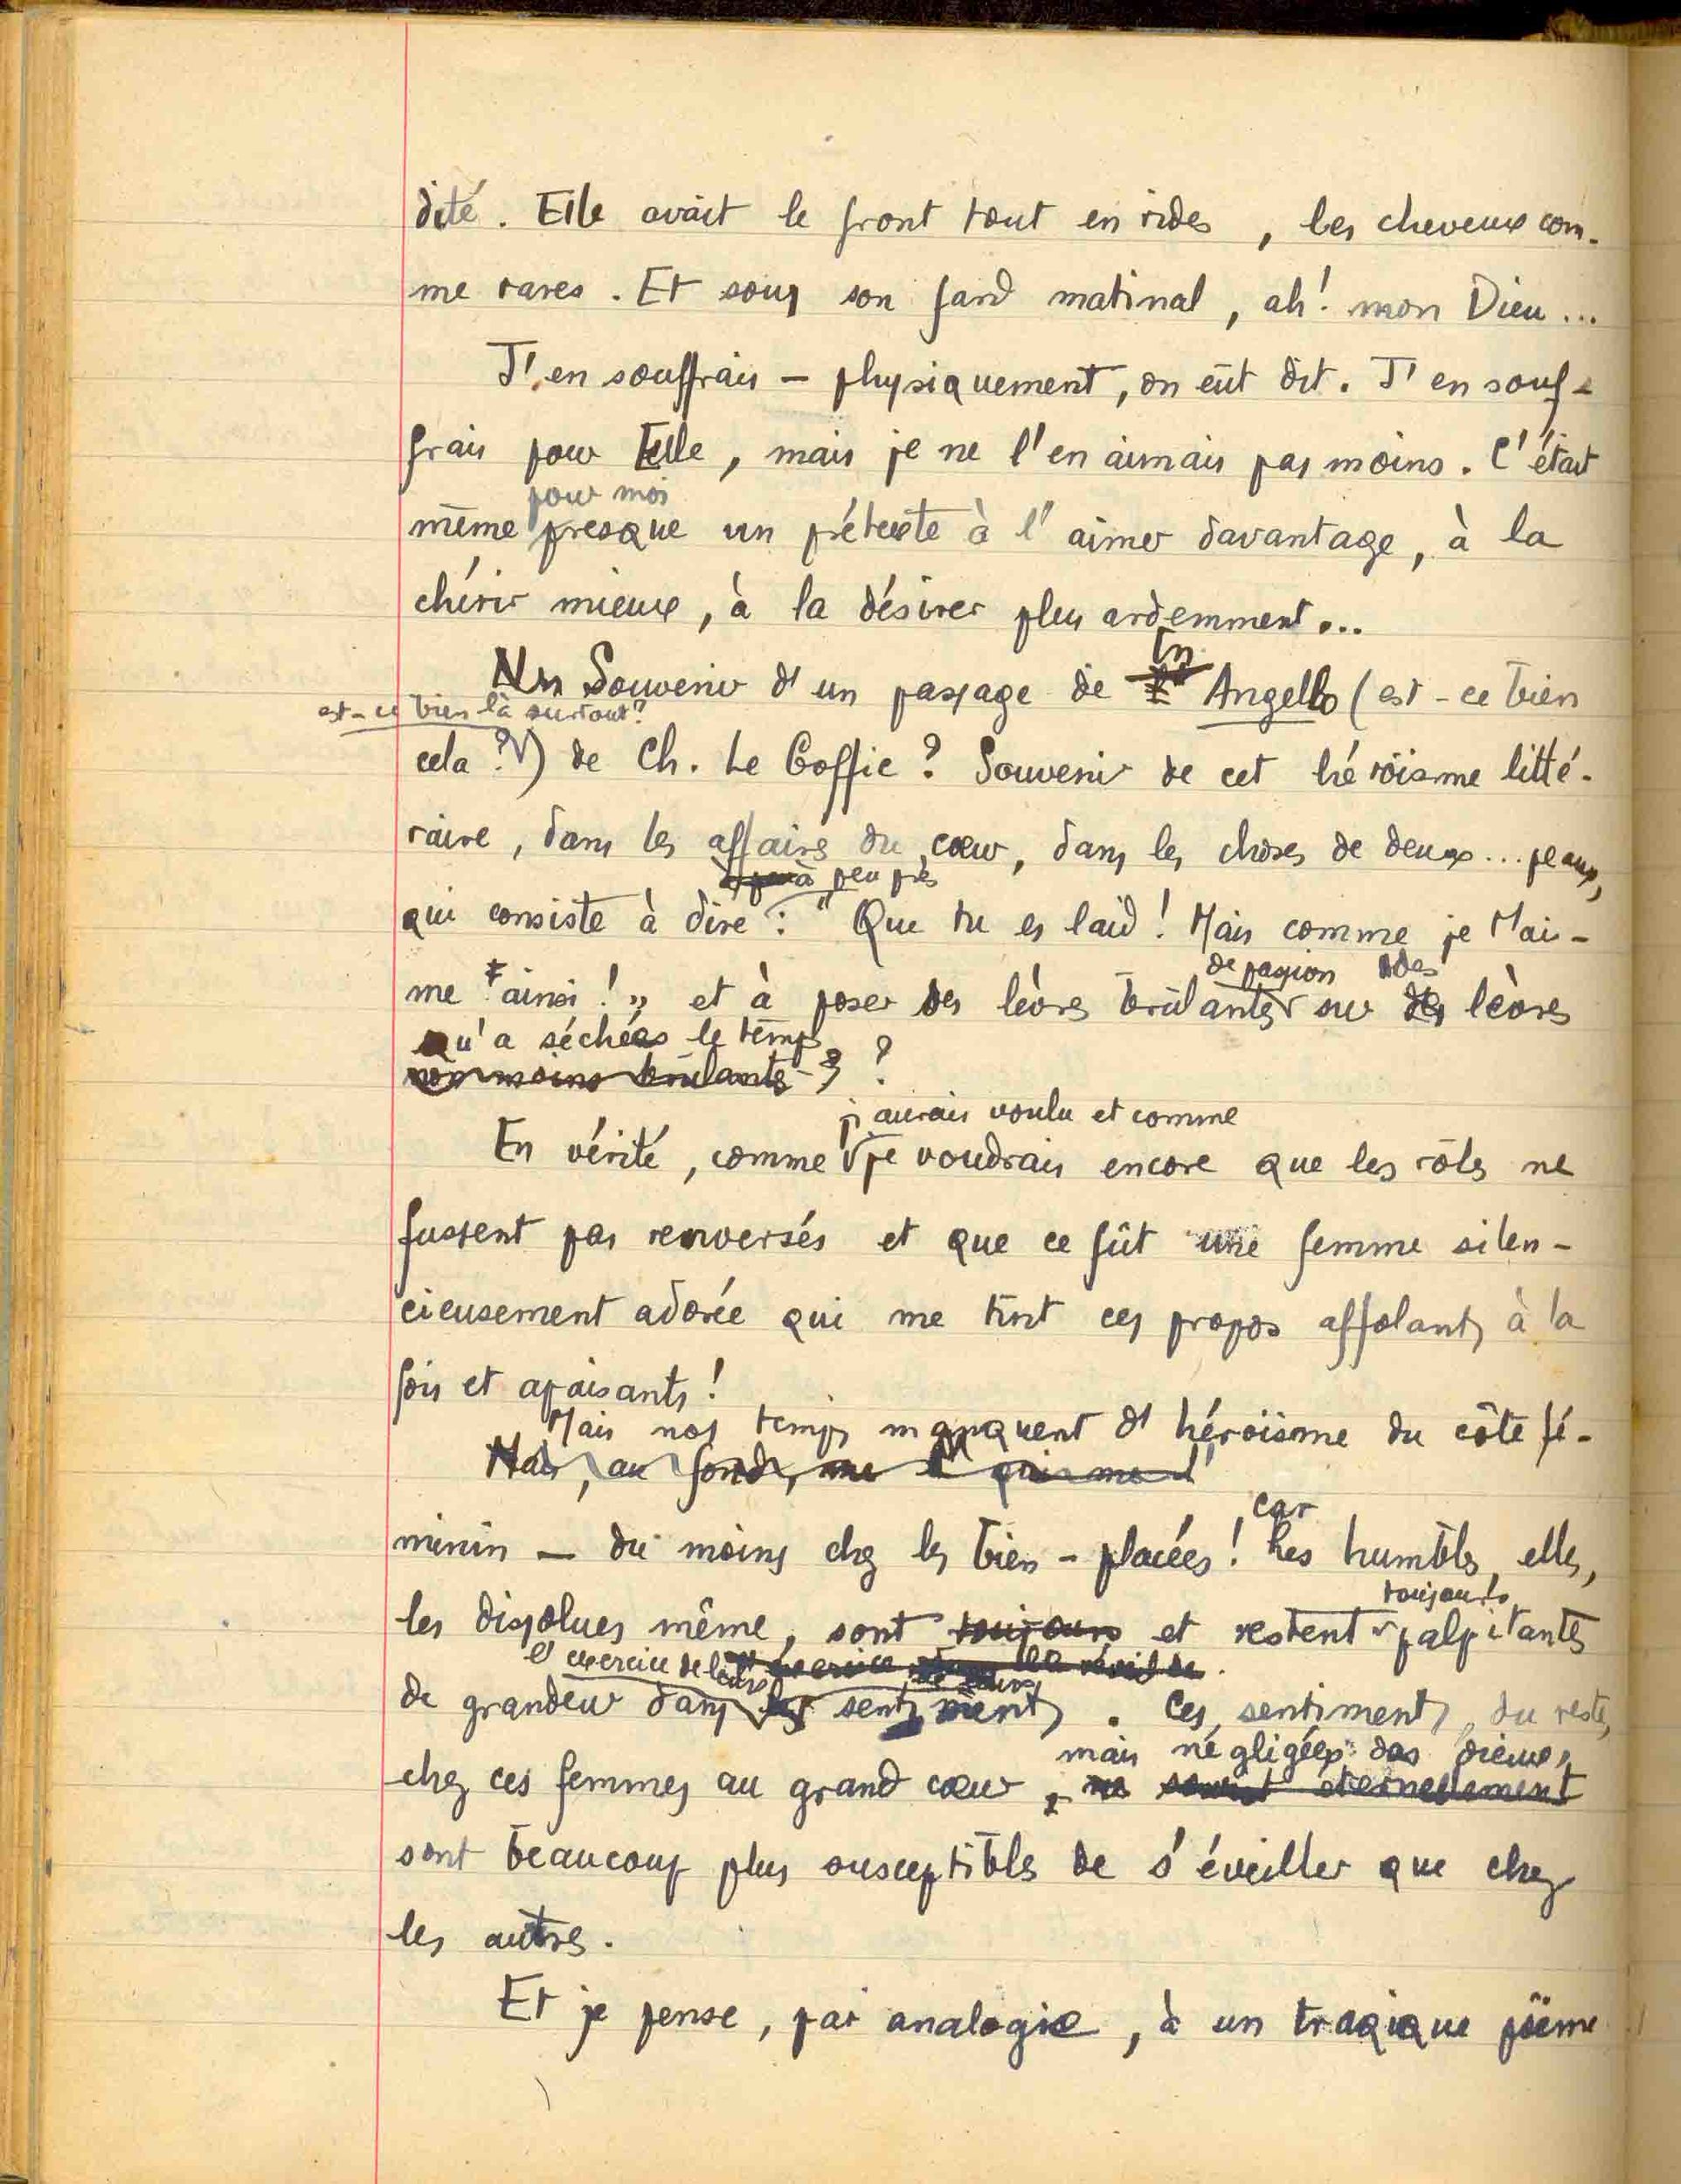 dité. Elle avait le front tout en rides, les cheveux com-
me rares. Et sous son fard matinal, ah! mon Dieu...
J'en souffrais – physiquement, on eût dit. J'en souf-
frais pour Elle, mais je ne l'en aimais pas moins. C'était
pour moi
même presque un prétexte à l'aimer davantage, à la
chérir mieux, à la désirer plus ardemment...
In
Souvenir d'un passage de Angello (est-ce bien
est-ce bien là surtout?
cela?) de Ch. Le Goffic? Souvenir de cet héroïsme litté-
raire, dans les affaires du cœur, dans les choses de deux... peaux,
à peu près
qui consiste à dire : "Que tu es laid! Mais comme je t'ai-
de passion des
me ainsi!" et à poser des lèvres brûlantes sur des lèvres
qu'a séchées le temps
non moins brûlantes ?
j'aurais voulu et comme
En vérité, comme je voudrais encore que les rôles ne
fussent pas renversés et que ce fût une femme silen-
cieusement adorée qui me tînt ces propos affolants à la
fois et apaisants!
Mais nos temps manquent d'héroïsme du côté fé-
Mais, au fond,
car
minin – du moins chez les bien-placées! Les humbles, elles,
toujours
les dissolues même, sont toujours et restent palpitantes
l'exercice de leurs
de grandeur dans sentiments. Ces sentiments, du reste,
mais négligées des dieux,
chez ces femmes au grand cœur, ne sont éternellement
sont beaucoup plus susceptibles de s'éveiller que chez
les autres.
Et je pense, par analogie, à un tragique poème